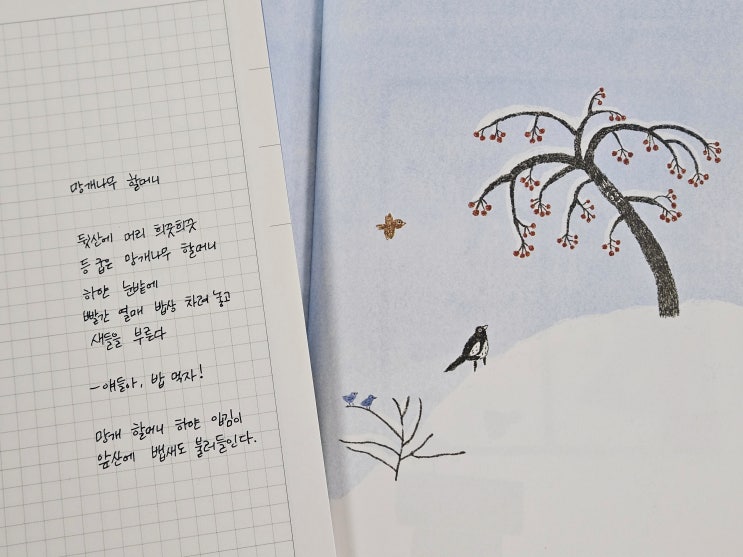 망개나무 할머니
뒷산에 머리 희끗희끗
등 굽은 망개나무 할머니
하얀 눈밭에
빨간 열매 밥상 차려 놓고
새들을 부른다
- 얘들아, 밥 먹자!
망개 할머니 하얀 입김이
앞산에 뱁새도 불러들인다.